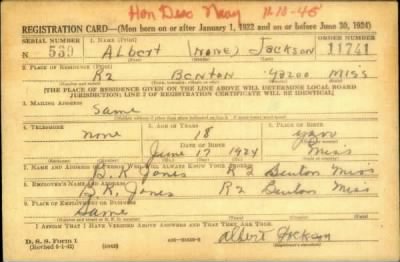 Hon Disc Navy 11-10-45
REGISTRATION CARD—(Men born on or after January 1, 1922 and on or before June 30, 1924)
SERIAL NUMBER 1. NAME (Print) ORDER NUMBER
N 530 Albert (None) Jackson 11741
2. PLACE OF RESIDENCE (Print)
R2 Benton Yazoo Miss
[THE PLACE OF RESIDENCE GIVEN ON THE LINE ABOVE WILL DETERMINE LOCAL BOARD
JURISDICTION; LINE 2 OF REGISTRATION CERTIFICATE WILL BE IDENTICAL]
3. MAILING ADDRESS
Same
4. TELEPHONE 5. AGE IN YEARS 6. PLACE OF BIRTH
none 18 Yazoo
DATE OF BIRTH
June 17 1924 Miss
7. NAME AND ADDRESS OF PERSON WHO WILL ALWAYS KNOW YOUR ADDRESS
Jones R2 Benton Miss
8. EMPLOYER'S NAME AND ADDRESS
Jones R2 Benton Miss
9. PLACE OF EMPLOYMENT OR BUSINESS
Same
I AFFIRM THAT I HAVE VERIFIED ABOVE ANSWERS AND THAT THEY ARE TRUE.
D. S. S. Form 1
Albert Jackson